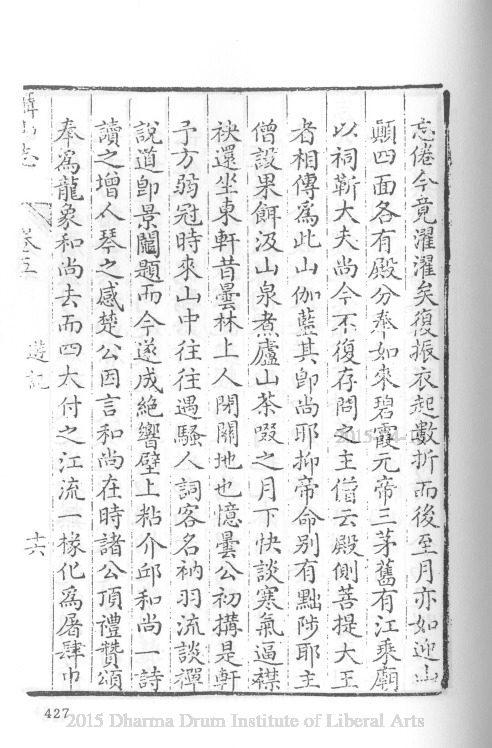 忘倦今竟濯濯矣復振衣起數折而後至月亦如迎山
顛四面各有殿分奉如來碧霞元帝三茅舊有江乘廟
以祠靳大夫尚今不復存問之主僧云殿側菩提大王
者相傳為此山伽藍其卽尚耶抑帝命別有黜陟耶主
僧設果餌汲山泉煮廬山茶啜之月下快談寒氣逼襟
袂還坐東軒昔曇林上人閉關地也憶曇公初搆是軒
予方弱冠時來山中往往遇騷人詞客名衲羽流談禪
說道卽景鬮題而今遂成絕響壁上粘介邱和尚一詩
讀之增人琴之感楚公因言和尚在時諸公頂禮贊頌
奉為龍象和尚去而四大付之江流一椽化為屠肆巾
山志
卷五
遊記
十六
427
2015 Dharma Drum Institute of Liberal Arts